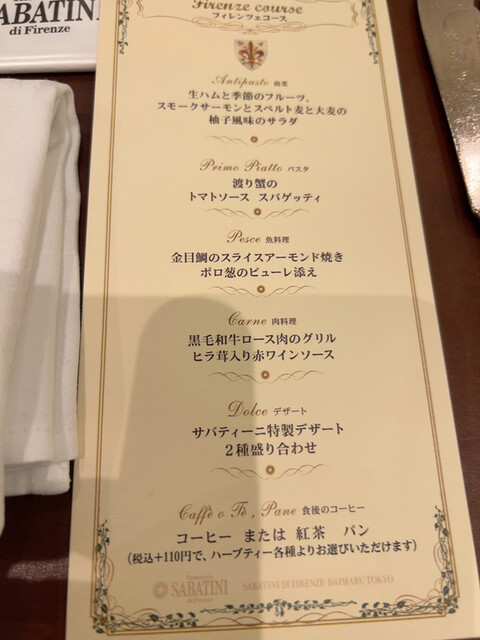 SABATINI
di Firenze
Firenze course
フィレンツェコース
Antipasto 前菜
生ハムと季節のフルーツ、
スモークサーモンとスペルト麦と大麦の
柚子風味のサラダ
Primo Piatto パスタ
渡り蟹の
トマトソース スパゲッティ
Pesce 魚料理
金目鯛のスライスアーモンド焼き
ポロ葱のピューレ添え
Carne 肉料理
黒毛和牛ロース肉のグリル
ヒラ茸入り赤ワインソース
Dolce デザート
サバティーニ特製デザート
2種盛り合わせ
Caffè o Tè, Pane 食後のコーヒー
コーヒー または 紅茶 パン
(税込+110円で、ハーブティー各種よりお選びいただけます)
SABATINI
di Firenze
SABATINI DI FIRENZE DAIMARU TOKYO